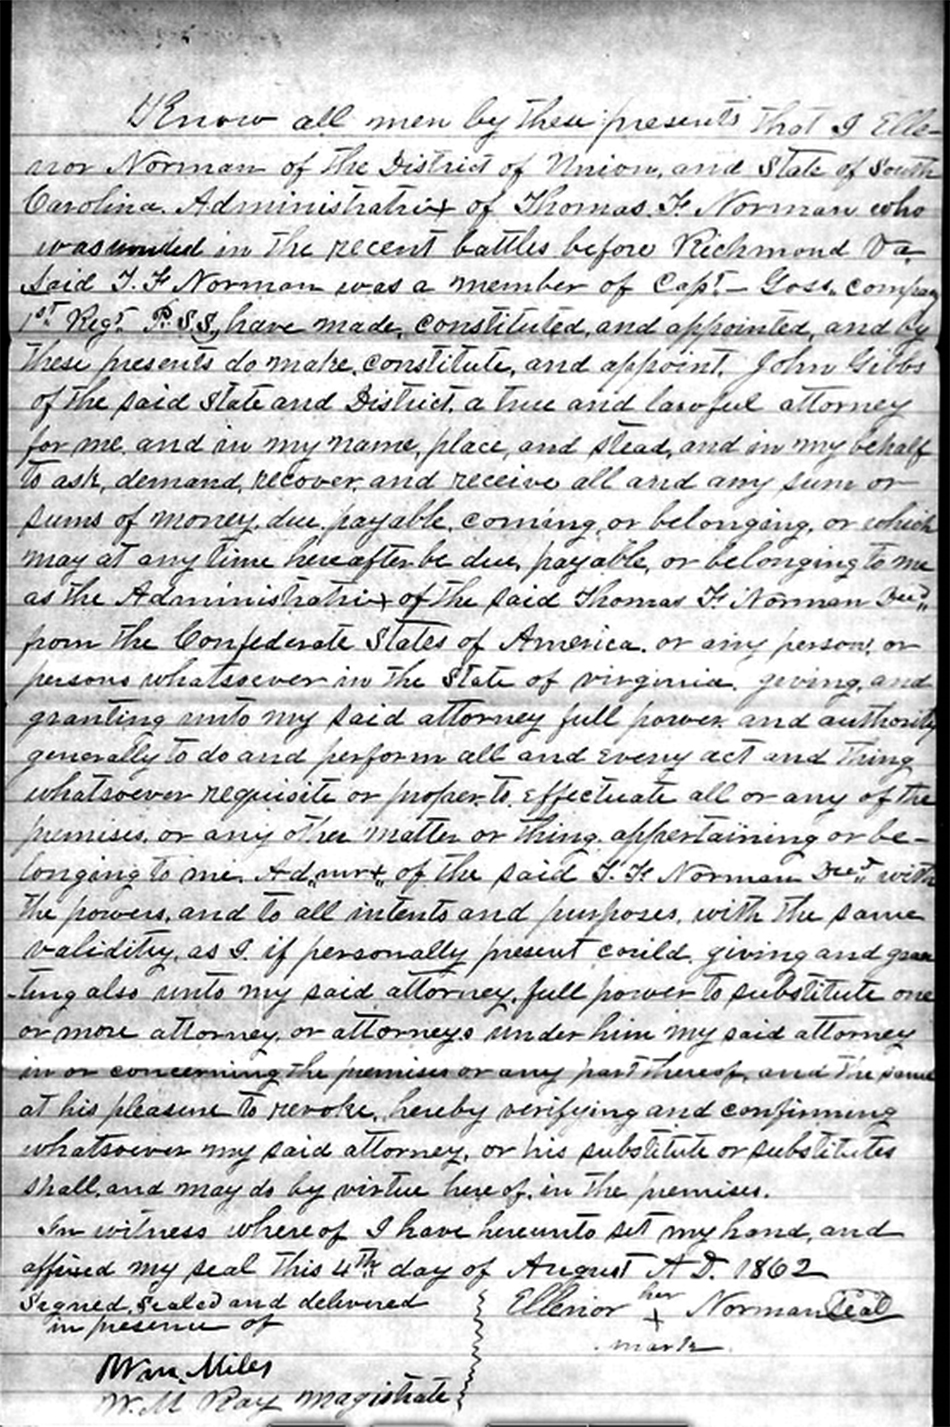 Know all men by these presents that I Elle-
nor Norman of the District of Union, and State of South
Carolina. Administratrix of Thomas. F. Norman who
was wounded in the recent battles before Richmond Va
Said T. F Norman was a member of Capt. Goss. company
1st Regt. P. S S, have made, constituted, and appointed, and by
these presents do make, constitute, and appoint, John Gibbs
of the said State and District, a true and lawful attorney
for me, and in my name, place, and stead, and in my behalf
to ask, demand, recover, and receive all and any sum or
sums of money, due, payable, coming, or belonging, or which
may at any time hereafter be due, payable, or belonging to me
as the Administratrix of the said Thomas F. Norman Decd.
from the Confederate States of America, or any person, or
persons whatsoever in the State of virginia. giving, and
granting unto my said attorney full power and authority
generally to do and perform all and every act and thing
whatsoever requisite or proper to effectuate all or any of the
premises, or any other matter or thing appertaining or be-
longing to me. Ad,,mrx,, of the said T. F. Norman Decd. with
the powers, and to all intents and purposes, with the same
validity, as I, if personally present could, giving and gran
-ting also unto my said attorney, full power to substitute one
or more attorney, or attorneys under him my said attorney
in or concerning the premises or any part thereof, and the same
at his pleasure to revoke, hereby verifying and confirming
whatsoever my said attorney, or his substitute or substitutes
shall, and may do by virtue hereof, in the premises.
In witness whereof I have hereunto set my hand, and
affixed my seal this 4th day of August A.D. 1862
Signed, Sealed and delivered
in presence of
Ellenor her Norman Seal
x
mark
Wm. Miles
W. M Ray magistrate